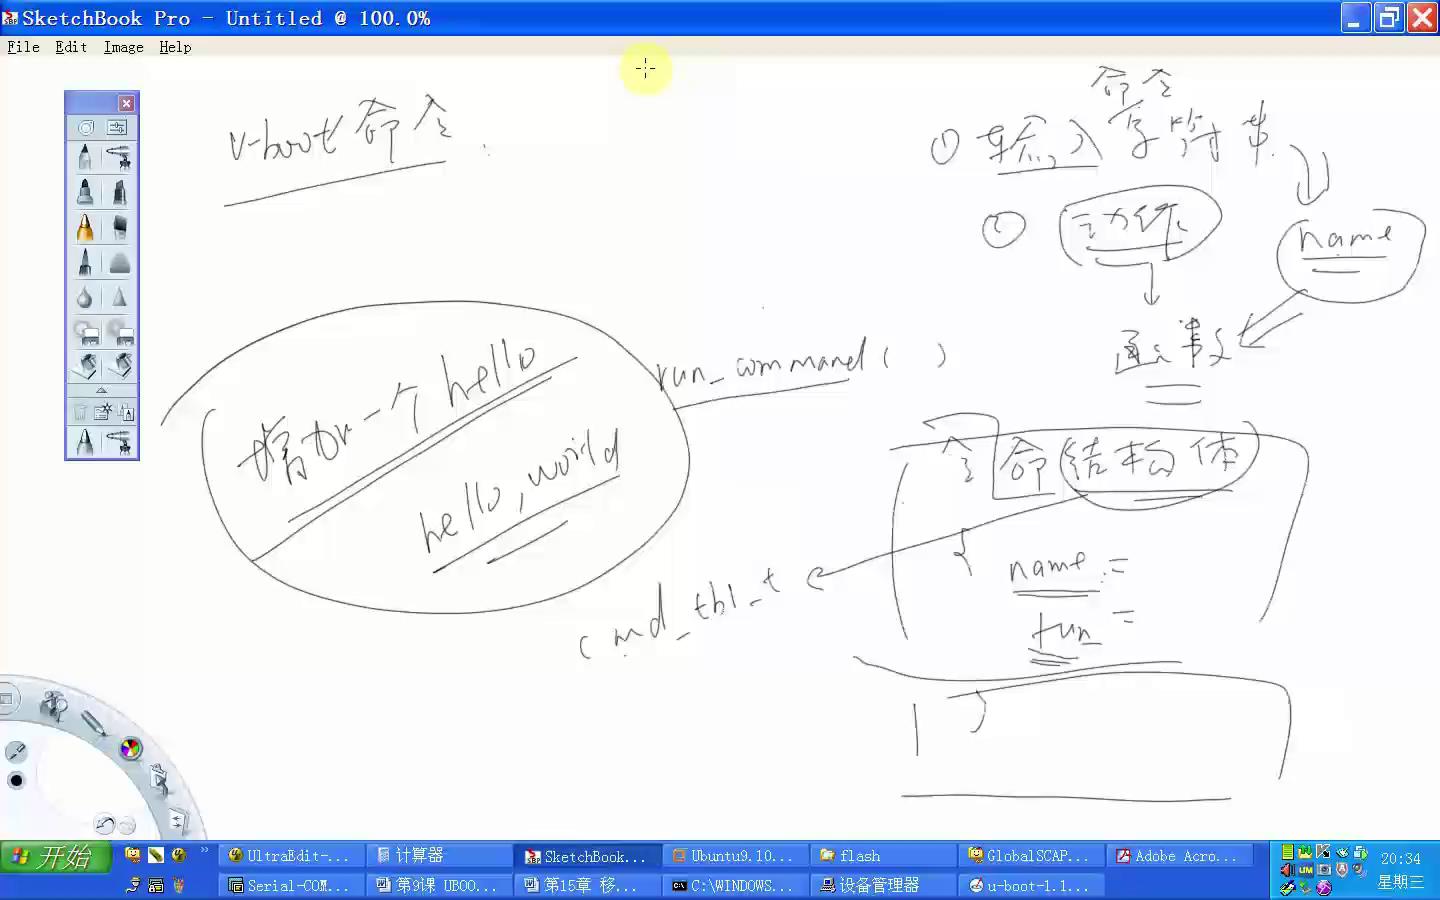 SketchBook Pro - Untitled @ 100.0%
File Edit Image Help
u-boot命令
命令
① 输入字符串
② 动作
name
函数
run_command( )
增加一个hello
hello,world
令命结构体
{
name =
fun =
}
cmd_tbl_t
开始
UltraEdit-...
计算器
SketchBook...
Ubuntu9.10...
flash
GlobalSCAP...
Adobe Acro...
Serial-COM...
第9课 UBOO...
第15章 移...
C:\WINDOWS...
设备管理器
u-boot-1.1...
20:34
星期三